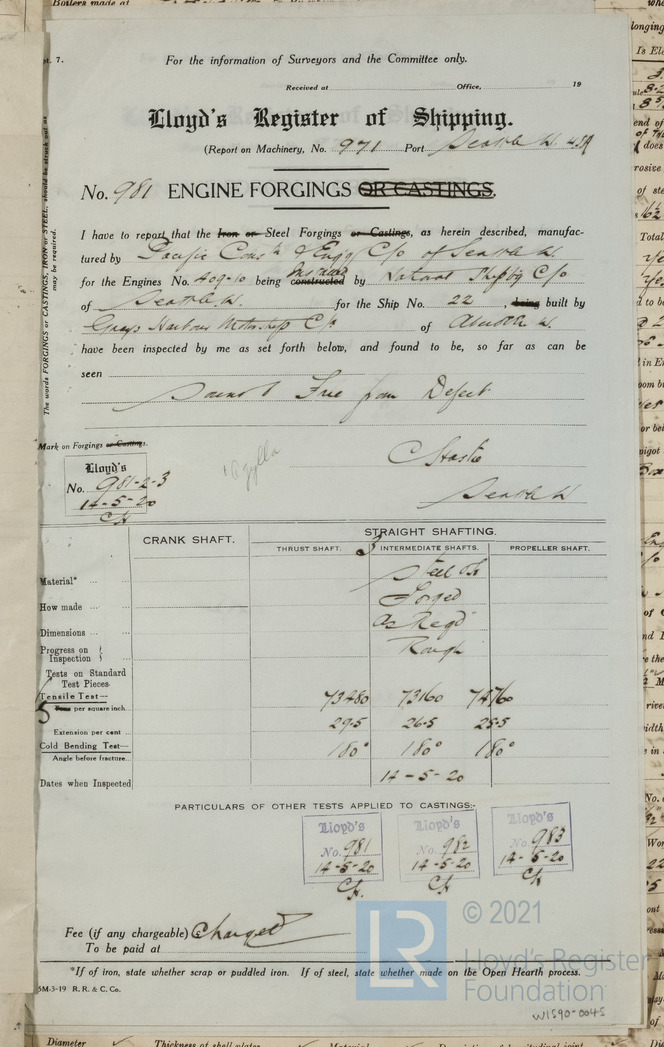 Boilers made at
pt. 7.
For the information of Surveyors and the Committee only.
Received at Office, 19
Lloyd's Register of Shipping.
(Report on Machinery, No. 971 Port Seattle W. USA
No. 981 ENGINE FORGINGS OR CASTINGS.
The words FORGINGS or CASTINGS, IRON or STEEL, should be struck out as may be required.
I have to report that the Iron or Steel Forgings or Castings, as herein described, manufac-
tured by Pacific Const & Engg C/o of Seattle W.
for the Engines No. 409-10 being constructed by National C/o
of Seattle W. for the Ship No. 22, being built by
Grays Harbour Motorship C/o of W.
have been inspected by me as set forth below, and found to be, so far as can be
seen
Sound & Free from Defect
Mark on Forgings or Castings.
Lloyd's
No. 981-2-3
14-5-20
CH
Seattle W
CRANK SHAFT.
STRAIGHT SHAFTING.
THRUST SHAFT. 3 INTERMEDIATE SHAFTS. PROPELLER SHAFT.
Material* Steel
How made Forged
Dimensions as Reqd
Progress on Inspection Rough
Tests on Standard Test Pieces
Tensile Test—
Tons per square inch 73480 73160 74760
Extension per cent 29.5 26.5 25.5
Cold Bending Test—
Angle before fracture 180° 180° 180°
Dates when Inspected 14-5-20
PARTICULARS OF OTHER TESTS APPLIED TO CASTINGS:-
Lloyd's Lloyd's Lloyd's
No. 981 No. 982 No. 983
14-5-20 14-5-20 14-5-20
CH CH CH
Fee (if any chargeable) Charged
To be paid at
*If of iron, state whether scrap or puddled iron. If of steel, state whether made on the Open Hearth process.
5M-3-19 R. R. & C. Co.
LR © 2021
Lloyd's Register
Foundation
W1590-0045
Diameter Thickness of shell plates Material